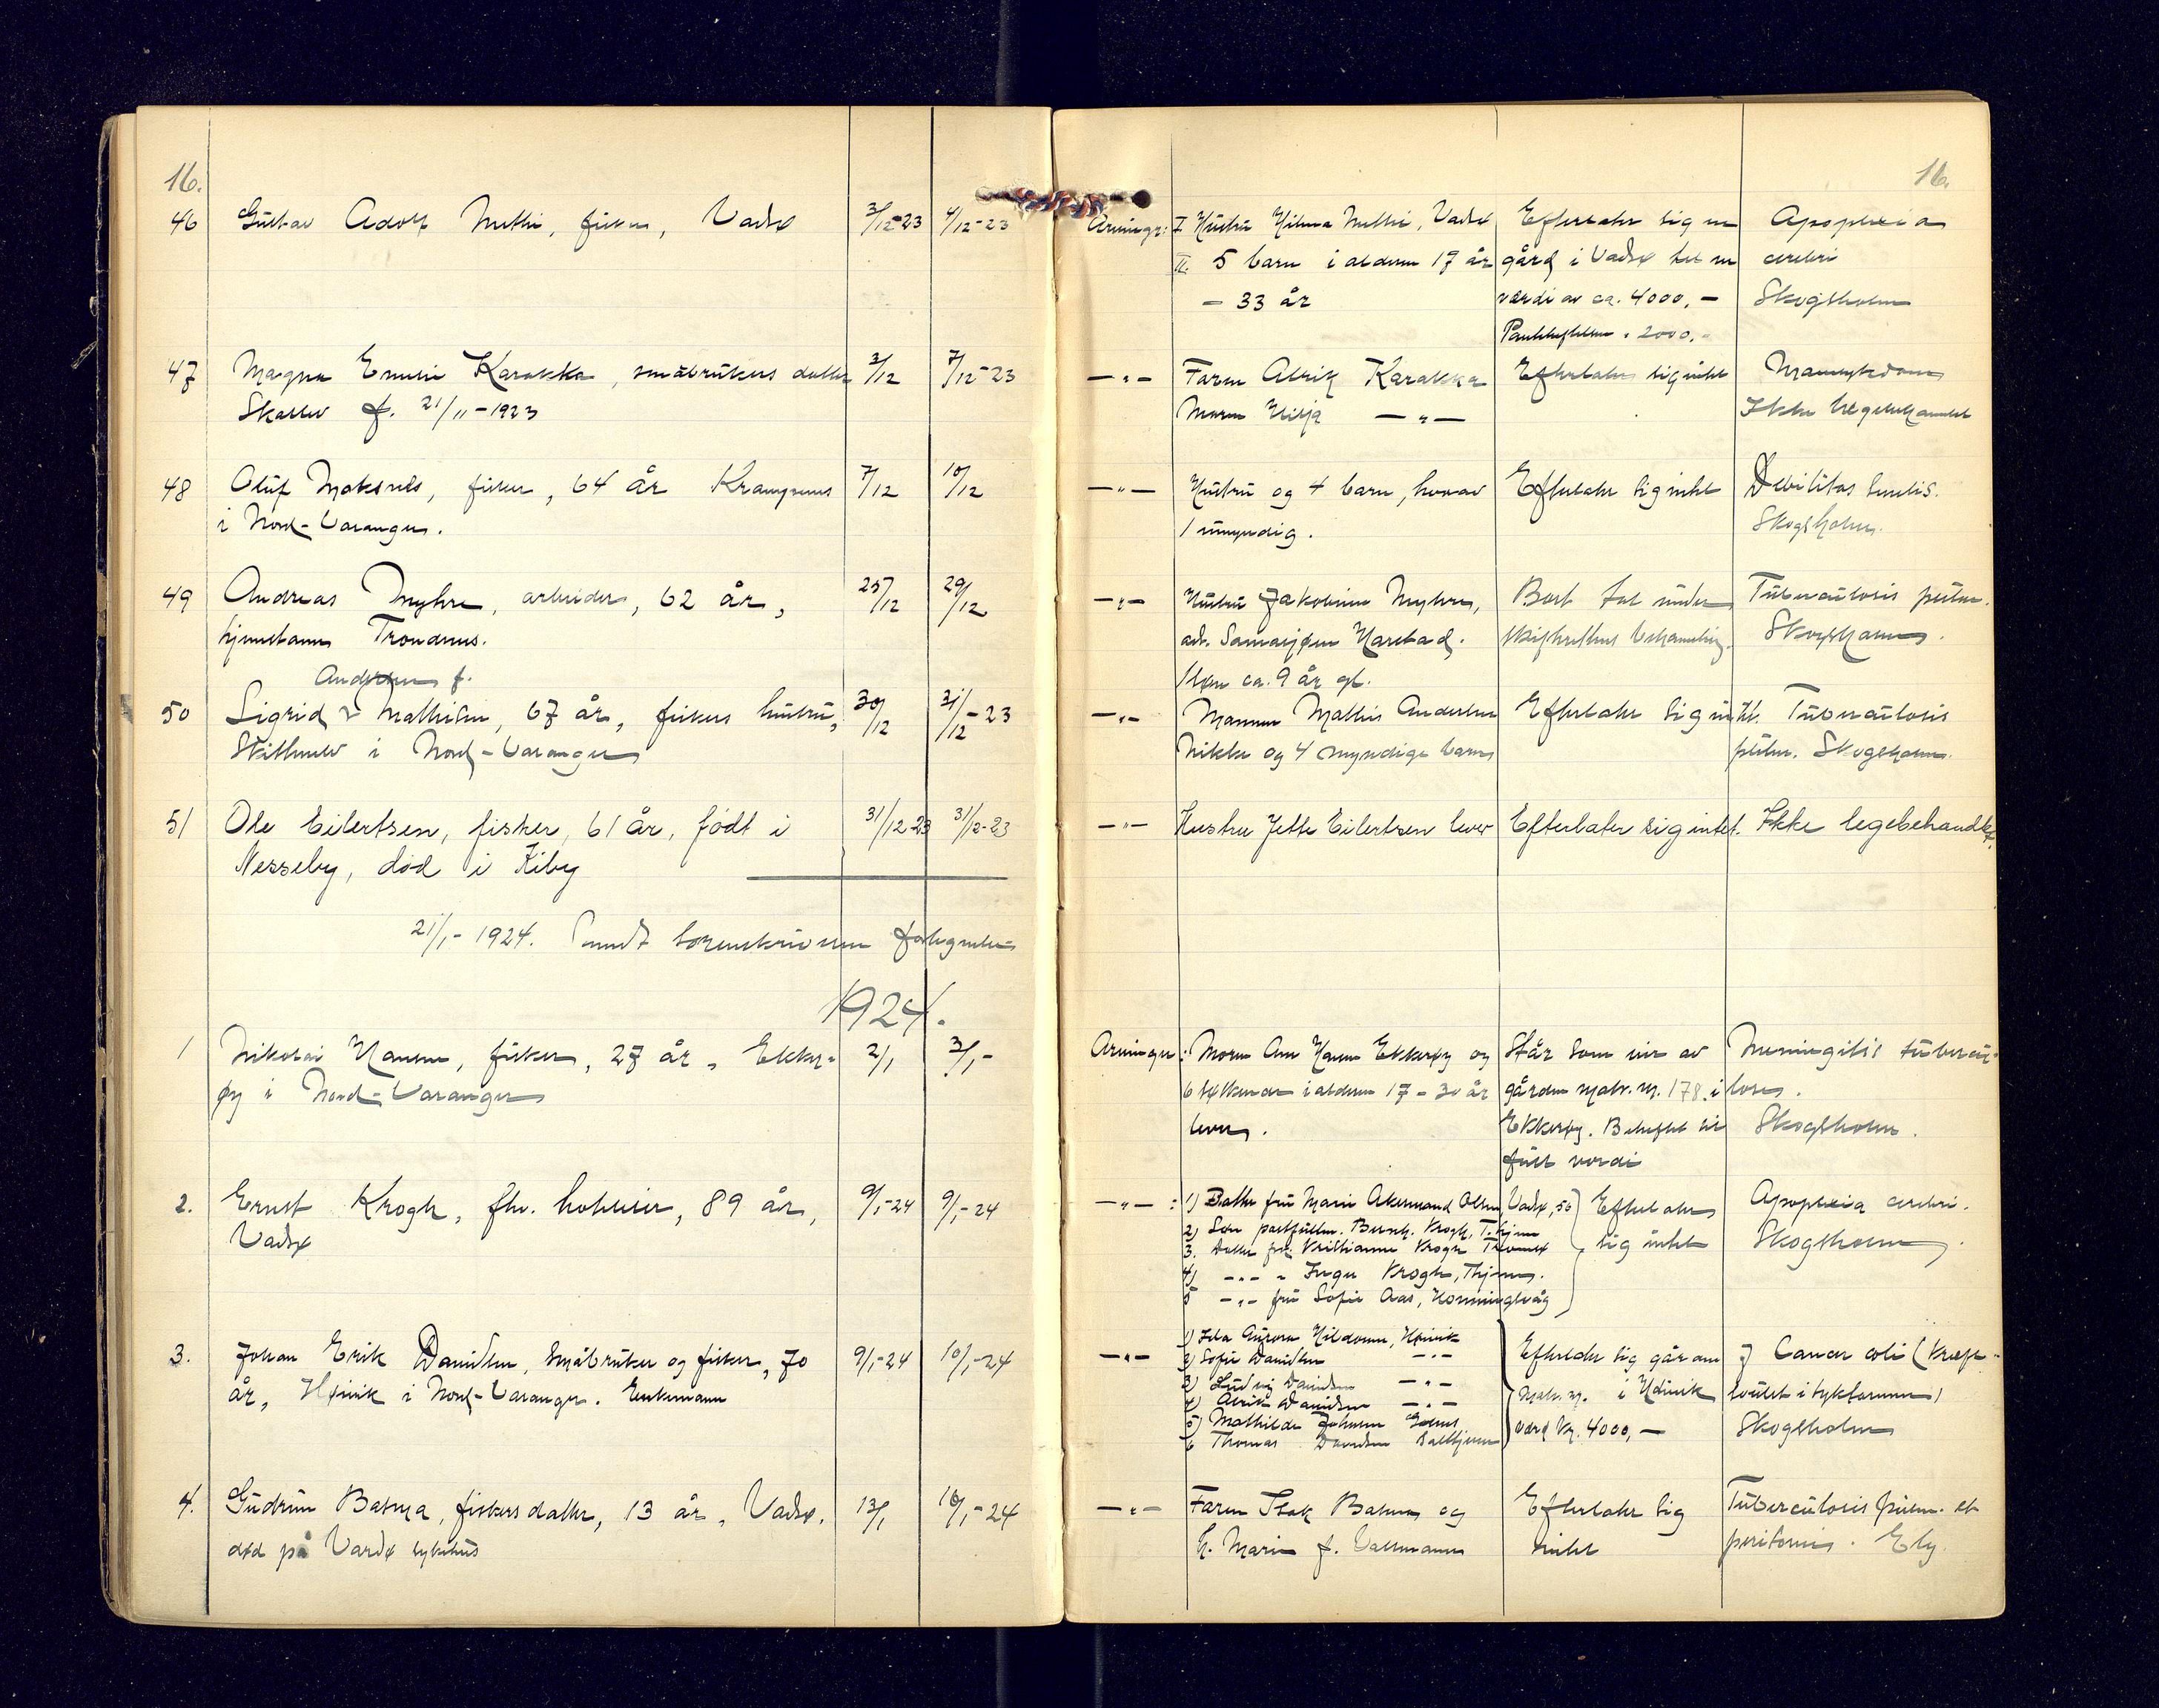 16.
46 Gustav Adolf Mathi, fisker, Vadsø 3/12-23 4/12-23
47 Magna Emelie Karakka, småbrukers datter 3/12 7/12-23
Skallelv f. 21/11-1923
48 Oluf Moksnes, fisker, 64 år Krampenes 7/12 10/12
i Nord-Varanger.
49 Andreas Myhre, arbeider, 62 år, 25/12 29/12
hjemstavn Trondenes.
Andersen f.
50 Sigrid Mathisen, 67 år, fiskers hustru, 30/12 31/12-23
i Nord-Varanger
51 Ole Eilertsen, fisker, 61 år, født i 31/12-23 31/12-23
Nesseby, død i Kiby
21/1-1924. Sendt sorenskriveren
1924.
1 Nikolai Hansen, fisker, 27 år, Ekker- 2/1 3/1-
øy i Nord-Varanger
2. Ernst Krogh, fhv. hoteleier, 89 år, 9/1-24 9/1-24
Vadsø
3. Johan Erik Danielsen, småbruker og fisker, 70 9/1-24 10/1-24
år, Høivik i Nord-Varanger. Enkemann
4. Gudrun Basma, fiskers datter, 13 år, Vadsø, 13/1 16/1-24
død på Vardø sykehus
16.
Arvinger: I Hustru Hilma Mathi, Vadsø Efterlater sig en Apoplexia
II. 5 barn i alderen 17 år gård i Vadsø til en cerebri
- 33 år værdi av ca. 4000,- Skogsholm
2000,-
-"- Faren Alrik Karakka Efterlater sig intet
Moren Hilja -"- Ikke lægebehandlet
-"- Hustru og 4 barn, hvorav Efterlater sig intet Debilitas senilis.
1 umyndig. Skogsholm.
-"- Hustru Jakobine Myhre, Bort tat under Tuberculosis pulm.
adr. Samasjøen Harstad. skifterettens behandling. Skogsholm.
1 søn ca. 9 år gl.
-"- Mannen Mathis Andersen Efterlater sig intet. Tuberculosis
Nikke og 4 myndige barn pulm. Skogsholm.
-"- Hustru Jette Eilertsen lever Efterlater sig intet. Ikke legebehandlet.
Arvinger: Moren Ane Hansen Ekkerøy og Står som eier av Meningitis tubercu-
6 søskende i alderen 17-30 år gården matr. nr. 178. i losa.
lever. Ekkerøy. Beheftet til Skogsholm.
full verdi
-"-: 1) Datter fru Marie Akermand Olsen, Vadsø, 50 Efterlater Apoplexia cerebri.
2) Søn postfullm. Bernh. Krogh, T.hjem sig intet Skogsholm.
3. datter frk. Kristianne Krogh Tromsø
4) -"- " Inga Krogh, Thjem.
5 -"- fru Sofie Aas, Honningsvåg
-"- 1) Ida Aurora Hildonen, Høivik Efterlater sig går Cancer coli (kræft-
2) Sofie Danielsen -"- matr. nr. i Høivik svulst i tyktarmen)
3) Ludvig Danielsen -"- værd kr. 4000,- Skogsholm
4) Alrik Danielsen -"-
5) Mathilde Johnsen
6 Thomas Danielsen
-"- Faren Isak Basma og Efterlater sig Tuberculosis pulm. et
h. Marie f. Vallmann intet peritonis. Ely